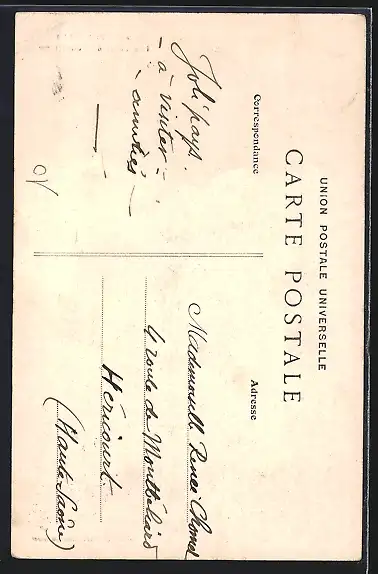 UNION POSTALE UNIVERSELLE
CARTE POSTALE
Correspondance
Adresse
Joli pays.
- à visiter -
- amitiés -
Mademoiselle Renée
9 route de Montbéliard
Héricourt
(Haute Saône)